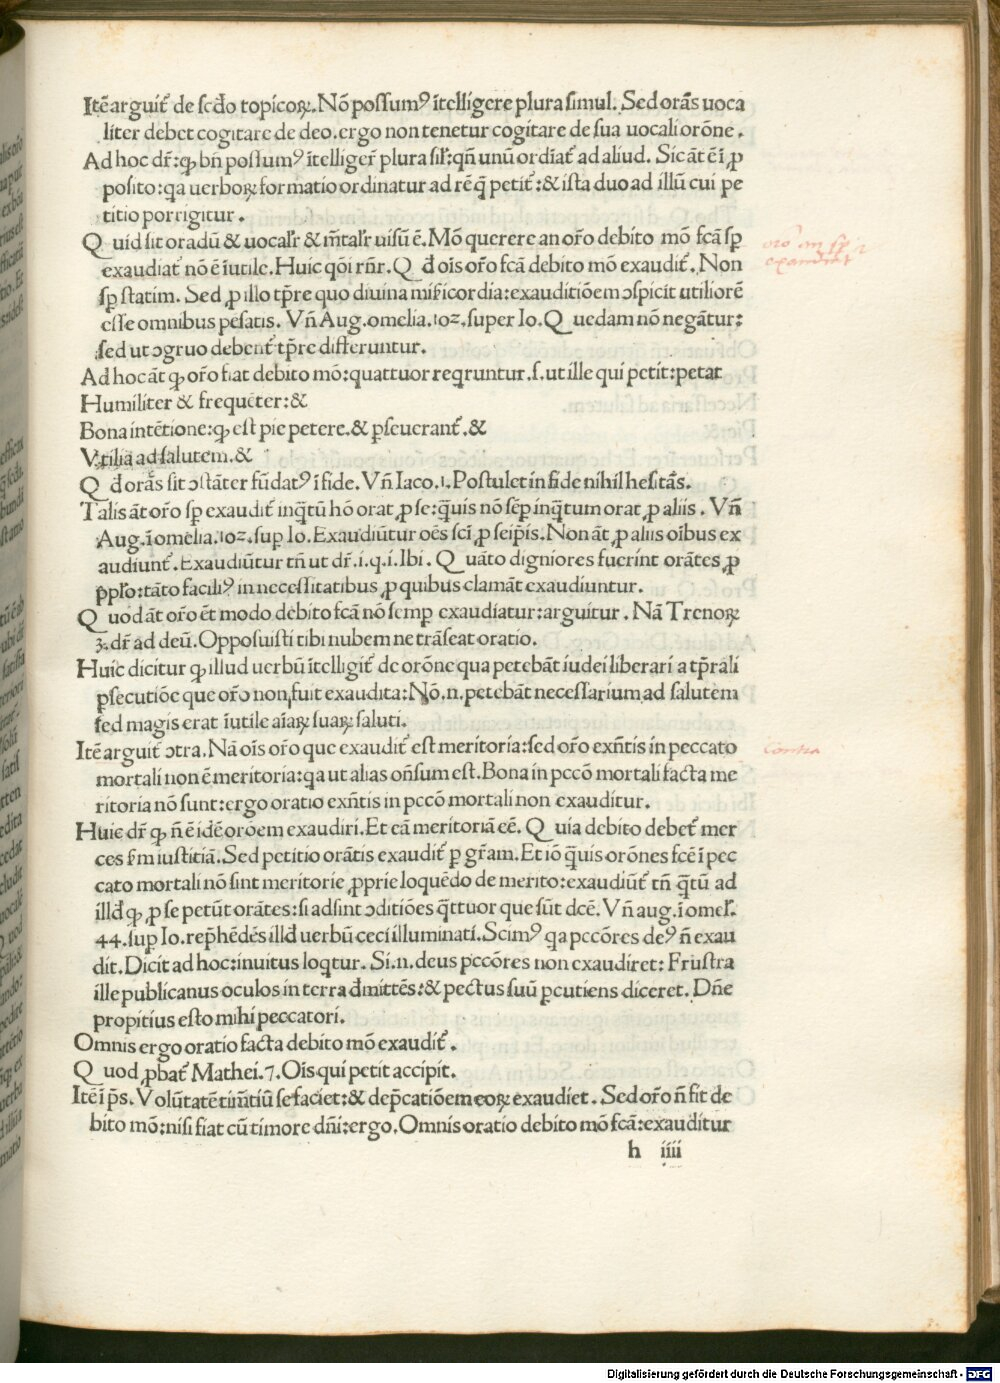 Itē arguit̃ de scd̃o topicoꝝ. Nō possumꝰ ītelligere plura simul. Sed orās uoca
liter debet cogitare de deo. ergo non tenetur cogitare de sua uocali orōne.
Ad hoc dr̃: ꝙ bñ possumꝰ ītelliger̃ plura sil̃: qñ unū ordīat̃ ad aliud. Sic āt ē ī ꝓ
posito: qa uerboꝝ formatio ordinatur ad rē q̄ petit̃: & ista duo ad illū cui pe
titio porrigitur.
Q uid sit orādū & uocal̃r & mētal̃r uisū ē. Mō querere an or̃o debito mō fcā sꝑ
exaudiat̃ nō ē īutile. Huic qōi rñr̃. Q d̃ oīs or̃o fcā debito mō exaudit̃. Non
sꝑ statim. Sed ꝓ illo tp̄re quo diuina mīsicordia: exauditiōem ↄspicit utiliorē
esse omnibus pēsatis. Vñ Aug. omelia. 102. super Io. Q uedam nō negātur:
sed ut ↄgruo debent̃ tp̄re differuntur.
Ad hoc āt ꝙ or̃o fiat debito mō: quattuor reqruntur. s. ut ille qui petit: petat
Humiliter & frequēter: &
Bona intētione: ꝙ est pie petere. & ꝑseuerant̃. &
Vtilia ad salutem. &
Q d̃ orās sit ↄstāter fūdatꝰ ī fide. Vñ Iaco. 1. Postulet in fide nihil hesitās.
Talis āt or̃o sꝑ exaudit̃ inq̄tū hō orat ꝓ se: q̄uis nō sēꝑ inq̄tum orat ꝓ aliis. Vñ
Aug. ī omelia. 102. suꝑ Io. Exaudiūtur oēs scī ꝓ seip̄is. Non āt ꝓ aliis oībus ex
audiunt̃. Exaudiūtur tñ ut dr̃. i. q. i. Ibi. Q uāto digniores fuerint orātes ꝓ
ppl̃o: tāto faciliꝰ in necessitatibus ꝓ quibus clamāt exaudiuntur.
Q uod āt or̃o ēt modo debito fcā nō semꝑ exaudiatur: arguitur. Nā Trenoꝝ
3. dr̃ ad deū. Opposuisti tibi nubem ne trāseat oratio.
Huic dicitur ꝙ illud uerbū ītelligit̃ de orōne qua petebāt iudei liberari a tp̄rali
ꝑsecutiōe que or̃o non fuit exaudita: Nō .n. petebāt necessarium ad salutem
sed magis erat īutile aīaꝝ suaꝝ saluti.
Itē arguit̃ ↄtra. Nā oīs or̃o que exaudit̃ est meritoria: sed or̃o exñtis in peccato
mortali non ē meritoria: qa ut alias oñsum est. Bona in pccō mortali facta me
ritoria nō sunt: ergo oratio exñtis in pccō mortali non exauditur.
Huic dr̃ ꝙ ñ ē idē oroem exaudiri. Et eā meritoriā eē. Q uia debito debet̃ mer
ces fm iustitiā. Sed petitio orātis exaudit̃ ꝑ gr̄am. Et iō q̄uis orōnes fcē ī pec
cato mortali nō sint meritorie ꝓprie loquēdo de merito: exaudiūt̃ tñ q̄tū ad
illd̃ ꝙ ꝓ se petūt orātes: si adsint ↄditiōes q̄ttuor que sūt dcē. Vñ aug. ī omel̃.
44. suꝑ Io. rep̄hēdēs illd̃ uerbū ceci illuminati. Scimꝰ qa pccōres deꝰ ñ exau
dit. Dicit ad hoc: inuitus loqtur. Si .n. deus pccōres non exaudiret: Frustra
ille publicanus oculos in terra d̃mittēs: & pectus suū ꝑcutiens diceret. Dñe
propitius esto mihi peccatori.
Omnis ergo oratio facta debito mō exaudit̃.
Q uod ꝓbat̃ Mathei. 7. Oīs qui petit accipit.
Itē ī pˉs. Volūtatē timētiū se faciet: & dep̄catiōem eoꝝ exaudiet. Sed or̃o ñ fit de
bito mō: nisi fiat cū timore dñi: ergo. Omnis oratio debito mō fcā: exauditur
h iiii
oro an sꝑ
exaudiat̃
Contra
Digitalisierung gefördert durch die Deutsche Forschungsgemeinschaft - DFG